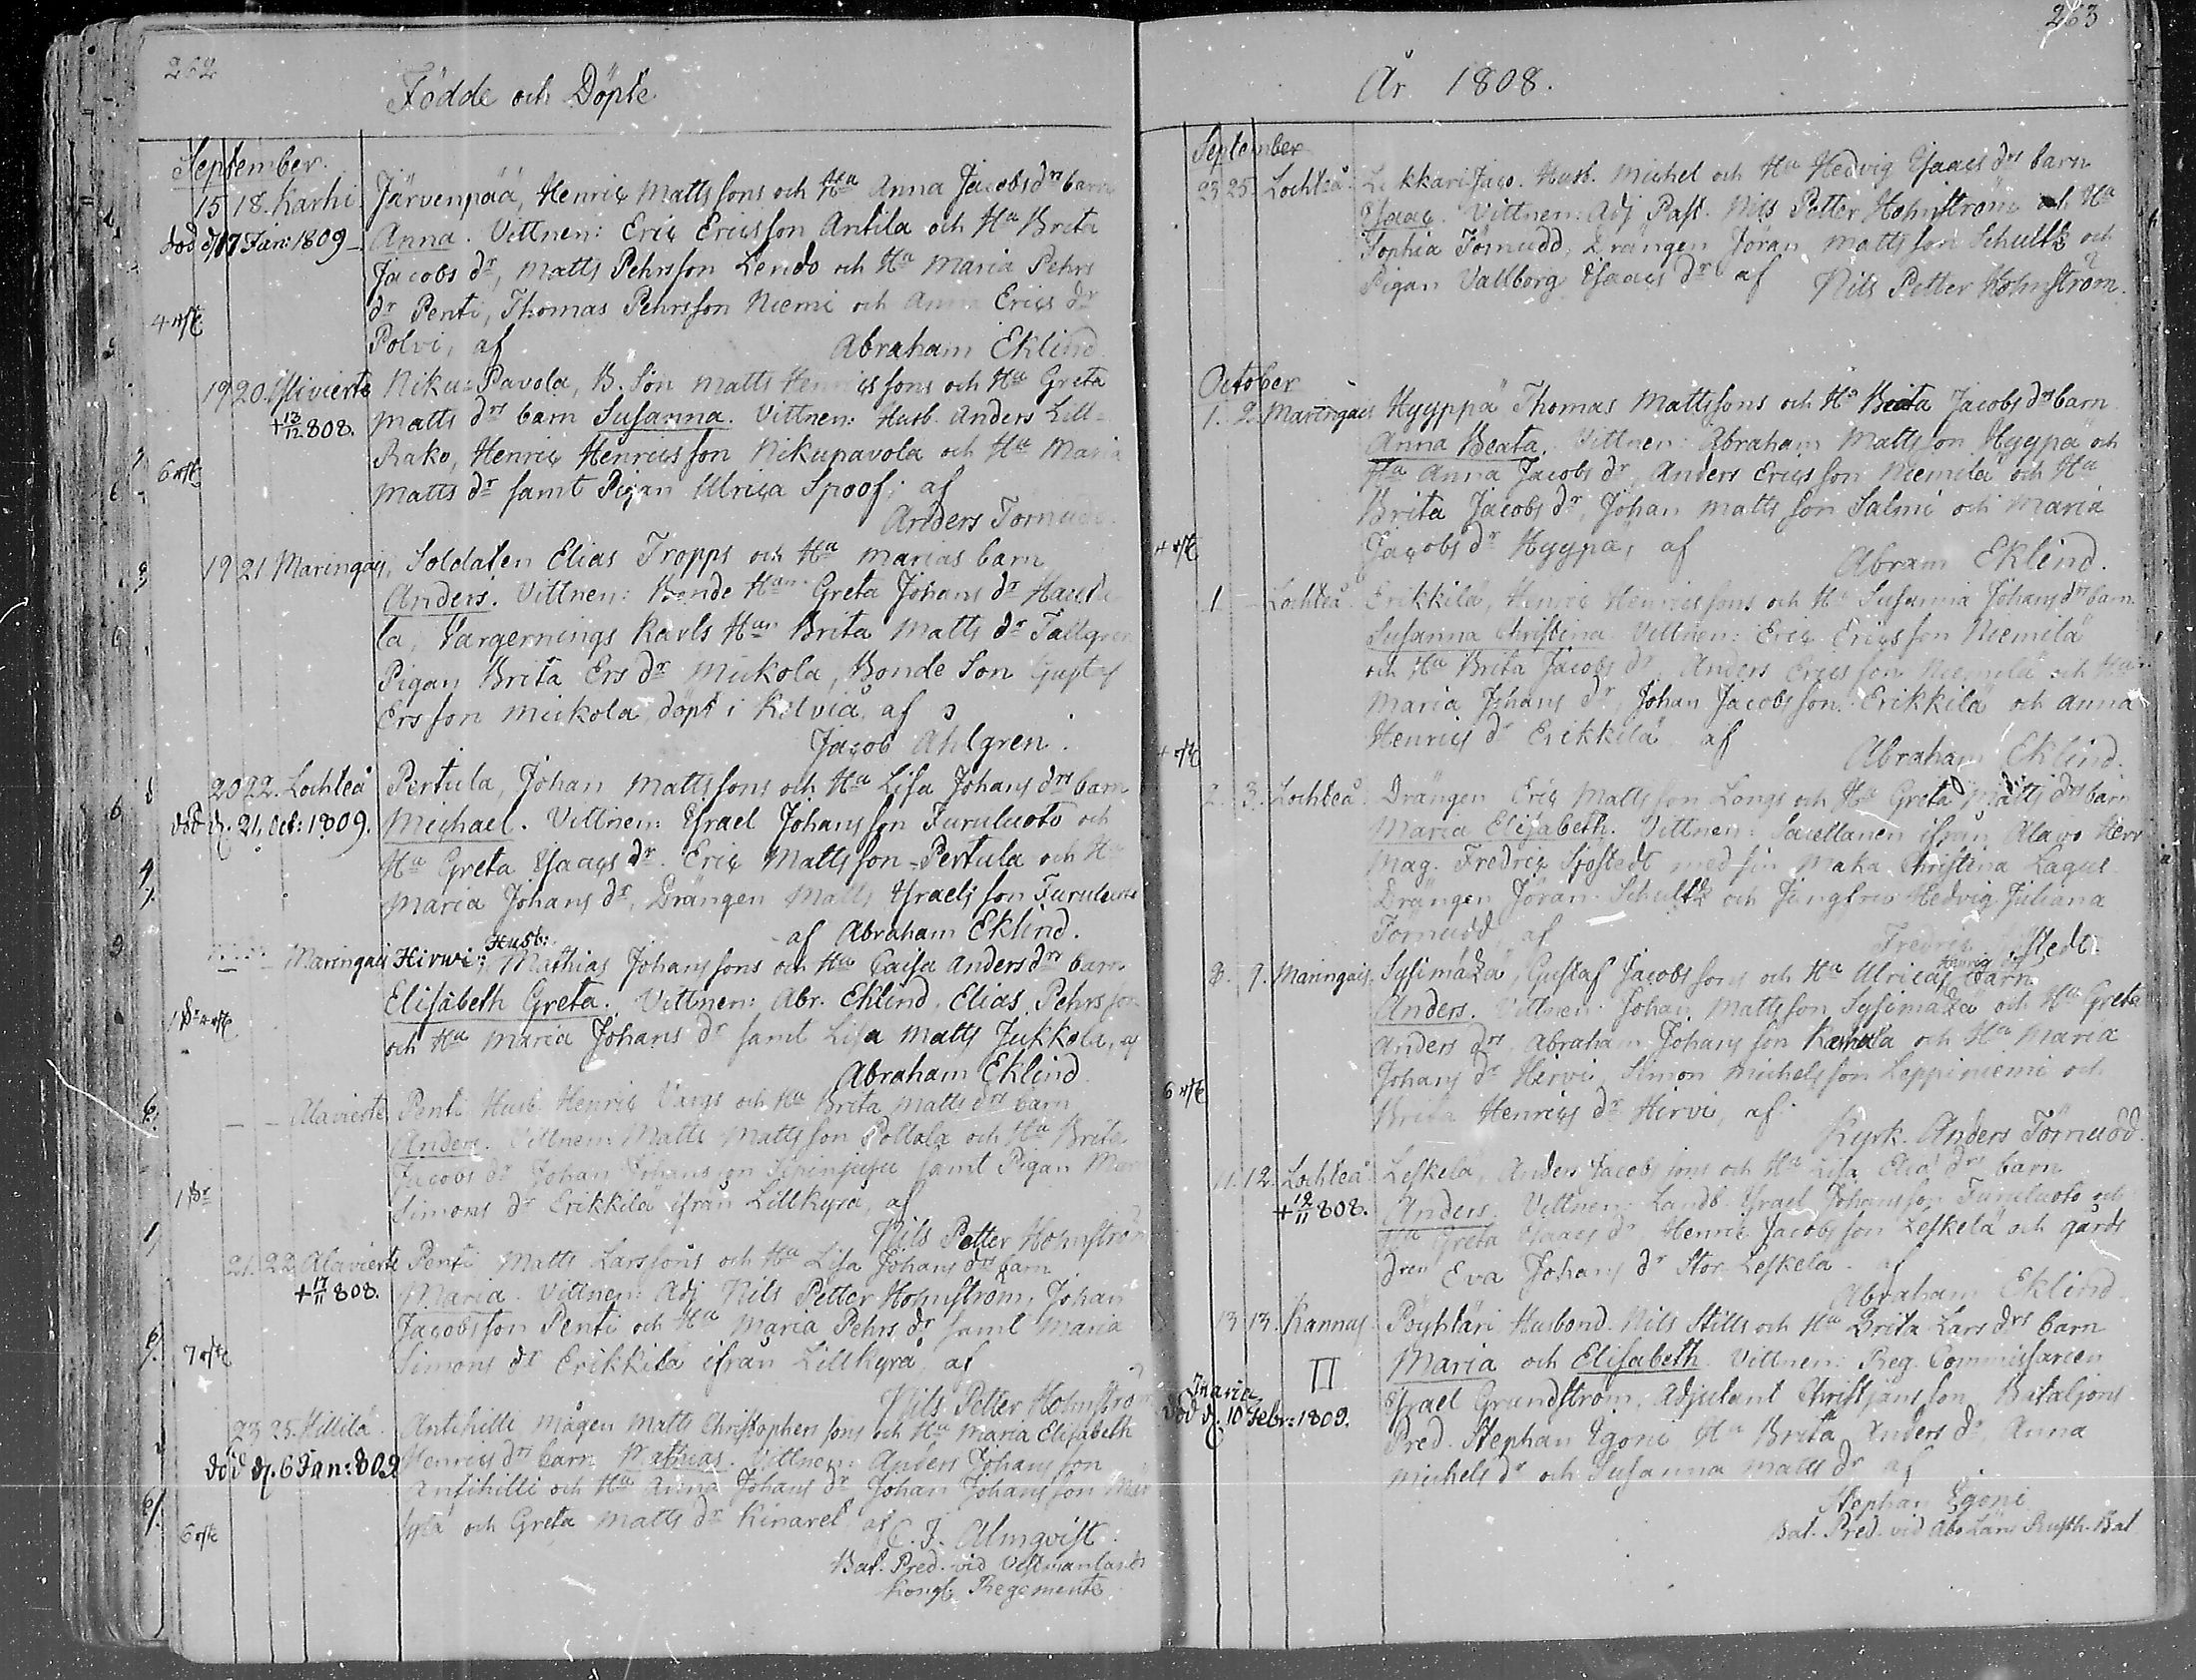 262
Födde och Döpte
September.
15 18. Karhi Järvenpää, Henric Mattssons och Hu Anna Jacobs drs barn
död d. 17 Jan: 1809 Anna. Vittnen: Eric Ericsson Antila och Hu Brita
Jacobs dr, Matts Pehrsson Lendo och Hu Maria Pehrs
dr Penti, Thomas Pehrsson Niemi och Anna Erics dr
Polvi, af Abraham Eklind
19 20. Alavierte Niku-Pavola, B. Son Matts Henricssons och Hu Greta
+ 13/12 808. Matts drs barn Susanna. Vittnen: Husb. Anders Lill-
Rako, Henric Henricsson Nikupavola och Hu Maria
Matts dr samt Pigan Ulrica Spoof; af
Anders Törnudd
19 21 Maringais, Soldaten Elias Tropps och Hu Marias barn
Anders. Vittnen: Bonde Hun Greta Johans dr
la, Vargernings Karls Hun Brita Matts dr Tallgren
Pigan Brita Ers dr Miekola, Bonde Son Gustaf
Ersson Miekola, döpt i Kelviå, af
Jacob Ahlgren.
20 22. Lochteå Pertula, Johan Mattssons och Hu Lisa Johans drs barn
död d. 21. Oct: 1809. Michael. Vittnen: Israel Johansson Furuluoto och
Hu Greta Isaacs dr. Eric Mattsson Pertula och Hu
Maria Johans dr, Drängen Matts Israelsson Furuluoto
af Abraham Eklind.
Maringais Hirvi: Husb: Mathias Johanssons och Hu Caisa Anders drs barn
Elisabeth Greta. Vittnen: Abr. Eklind, Elias Pehrsson
och Hu Maria Johans dr samt Lisa Matts Jukkola, af
Abraham Eklind
– – Alavierte Penti Husb. Henric Vargs och Hu Brita Matts drs barn
Anders. Vittnen: Matts Mattsson Pollala och Hu Brita
Jacobs dr Johan Johansson samt Pigan Maria
Simons dr Erikkilä ifrån Lillkyro, af
Nils Petter Holmström
21. 22 Alavierte Penti Matts Larssons och Hu Lisa Johans drs barn
+ 17/11 808. Maria. Vittnen: Adj Nils Petter Holmström, Johan
Jacobsson Penti och Hu Maria Pehrs dr samt Maria
Simons dr Erikkilä ifrån Lillkyro, af
Nils Petter Holmström
23 25. Hillilä. Antihilli Mågen Matts Christophersons och Hu Maria Elisabeth
död d. 6 Jan: 809 Henrics drs barn Mathias. Vittnen: Anders Johansson
Antihilli och Hu Anna Johans dr Johan Johansson
och Greta Matts dr Kinaret af C. J. Almqvist.
Bat. Pred. vid Vestmanlands
Kongl. Regemente
263.
År 1808.
September
23 25. Lochteå. Lekkari Jaco. Husb. Michel och Hu Hedvig Isaacs drs barn
Isaac. Vittnen: Adj Past. Nils Petter Holmström och Hu
Sophia Törnudd, Drängen Jöran Mattsson Schultz och
Pigan Vallborg Isaacs dr af Nils Petter Holmström.
October
1. 2. Maringais Hyyppä Thomas Mattssons och Hu Beata Jacobs drs barn
Anna Beata. Vittnen: Abraham Mattsson Hyypä och
Hu Anna Jacobs dr, Anders Ericsson Niemelä och Hu
Brita Jacobs dr, Johan Mattsson Salmi och Maria
Jacobs dr Hyypä, af
Abram Eklind.
1 – Lochteå. Erikkilä, Henric Henricssons och Hu Susanna Johans drs barn
Susanna Christina. Vittnen: Eric Ericsson Niemilä
och Hu Brita Jacobs dr Anders Ericsson Niemelä och Hu
Maria Johans dr, Johan Jacobsson Erikkilä och Anna
Henrics dr Erikkilä af
Abraham Eklind.
2. 3. Lochteå. Drängen Eric Mattsson Longs och Hu Greta Matts drs barn
Maria Elisabeth. Vittnen: Sacellanen ifrån Alavo Herr
Mag. Fredric Sjöstedt med sin Maka Christina Lagus
Drängen Jöran Schultz och Jungfru Hedvig Juliana
Törnudd af
Fredric Sjöstedt.
8. 9. Maringais. Sysimäkä, Gustaf Jacobssons och Hu Ulricas barn
Anders. Vittnen: Johan Mattsson Sysimäkä och Hu Greta
Anders drs, Abraham Johansson och Hu Maria
Johans dr Hirvi, Simon Michelsson Leppiniemi och
Brita Henrics dr Hirvi, af
Kyrk. Anders Törnudd.
11. 12. Lochteå. Leskelä, Anders Jacobssons och Hu Lisa drs barn
+ 12/11 808. Anders. Vittnen: Landb. Israel Johansson Furuluoto och
Hu Greta Isaacs dr, Henric Jacobsson Leskelä och gårds
dren Eva Johans dr Stor Leskelä. af
Abraham Eklind.
13 13. Kannus. Pöyhtäri Husbond. Nils Stills och Hu Brita Lars drs barn
Maria och Elisabeth. Vittnen: Reg. Commissarien
Maria död d. 10 Febr: 1809. Israel Grundström, Adjutant Christjansson, Bataljons
Pred. Stephan Egoni Hu Brita Anders dr, Anna
Michels dr och Susanna Matts dr af
Stephan Egoni
Bat. Pred. vid Åbo Läns Rusth. Bat